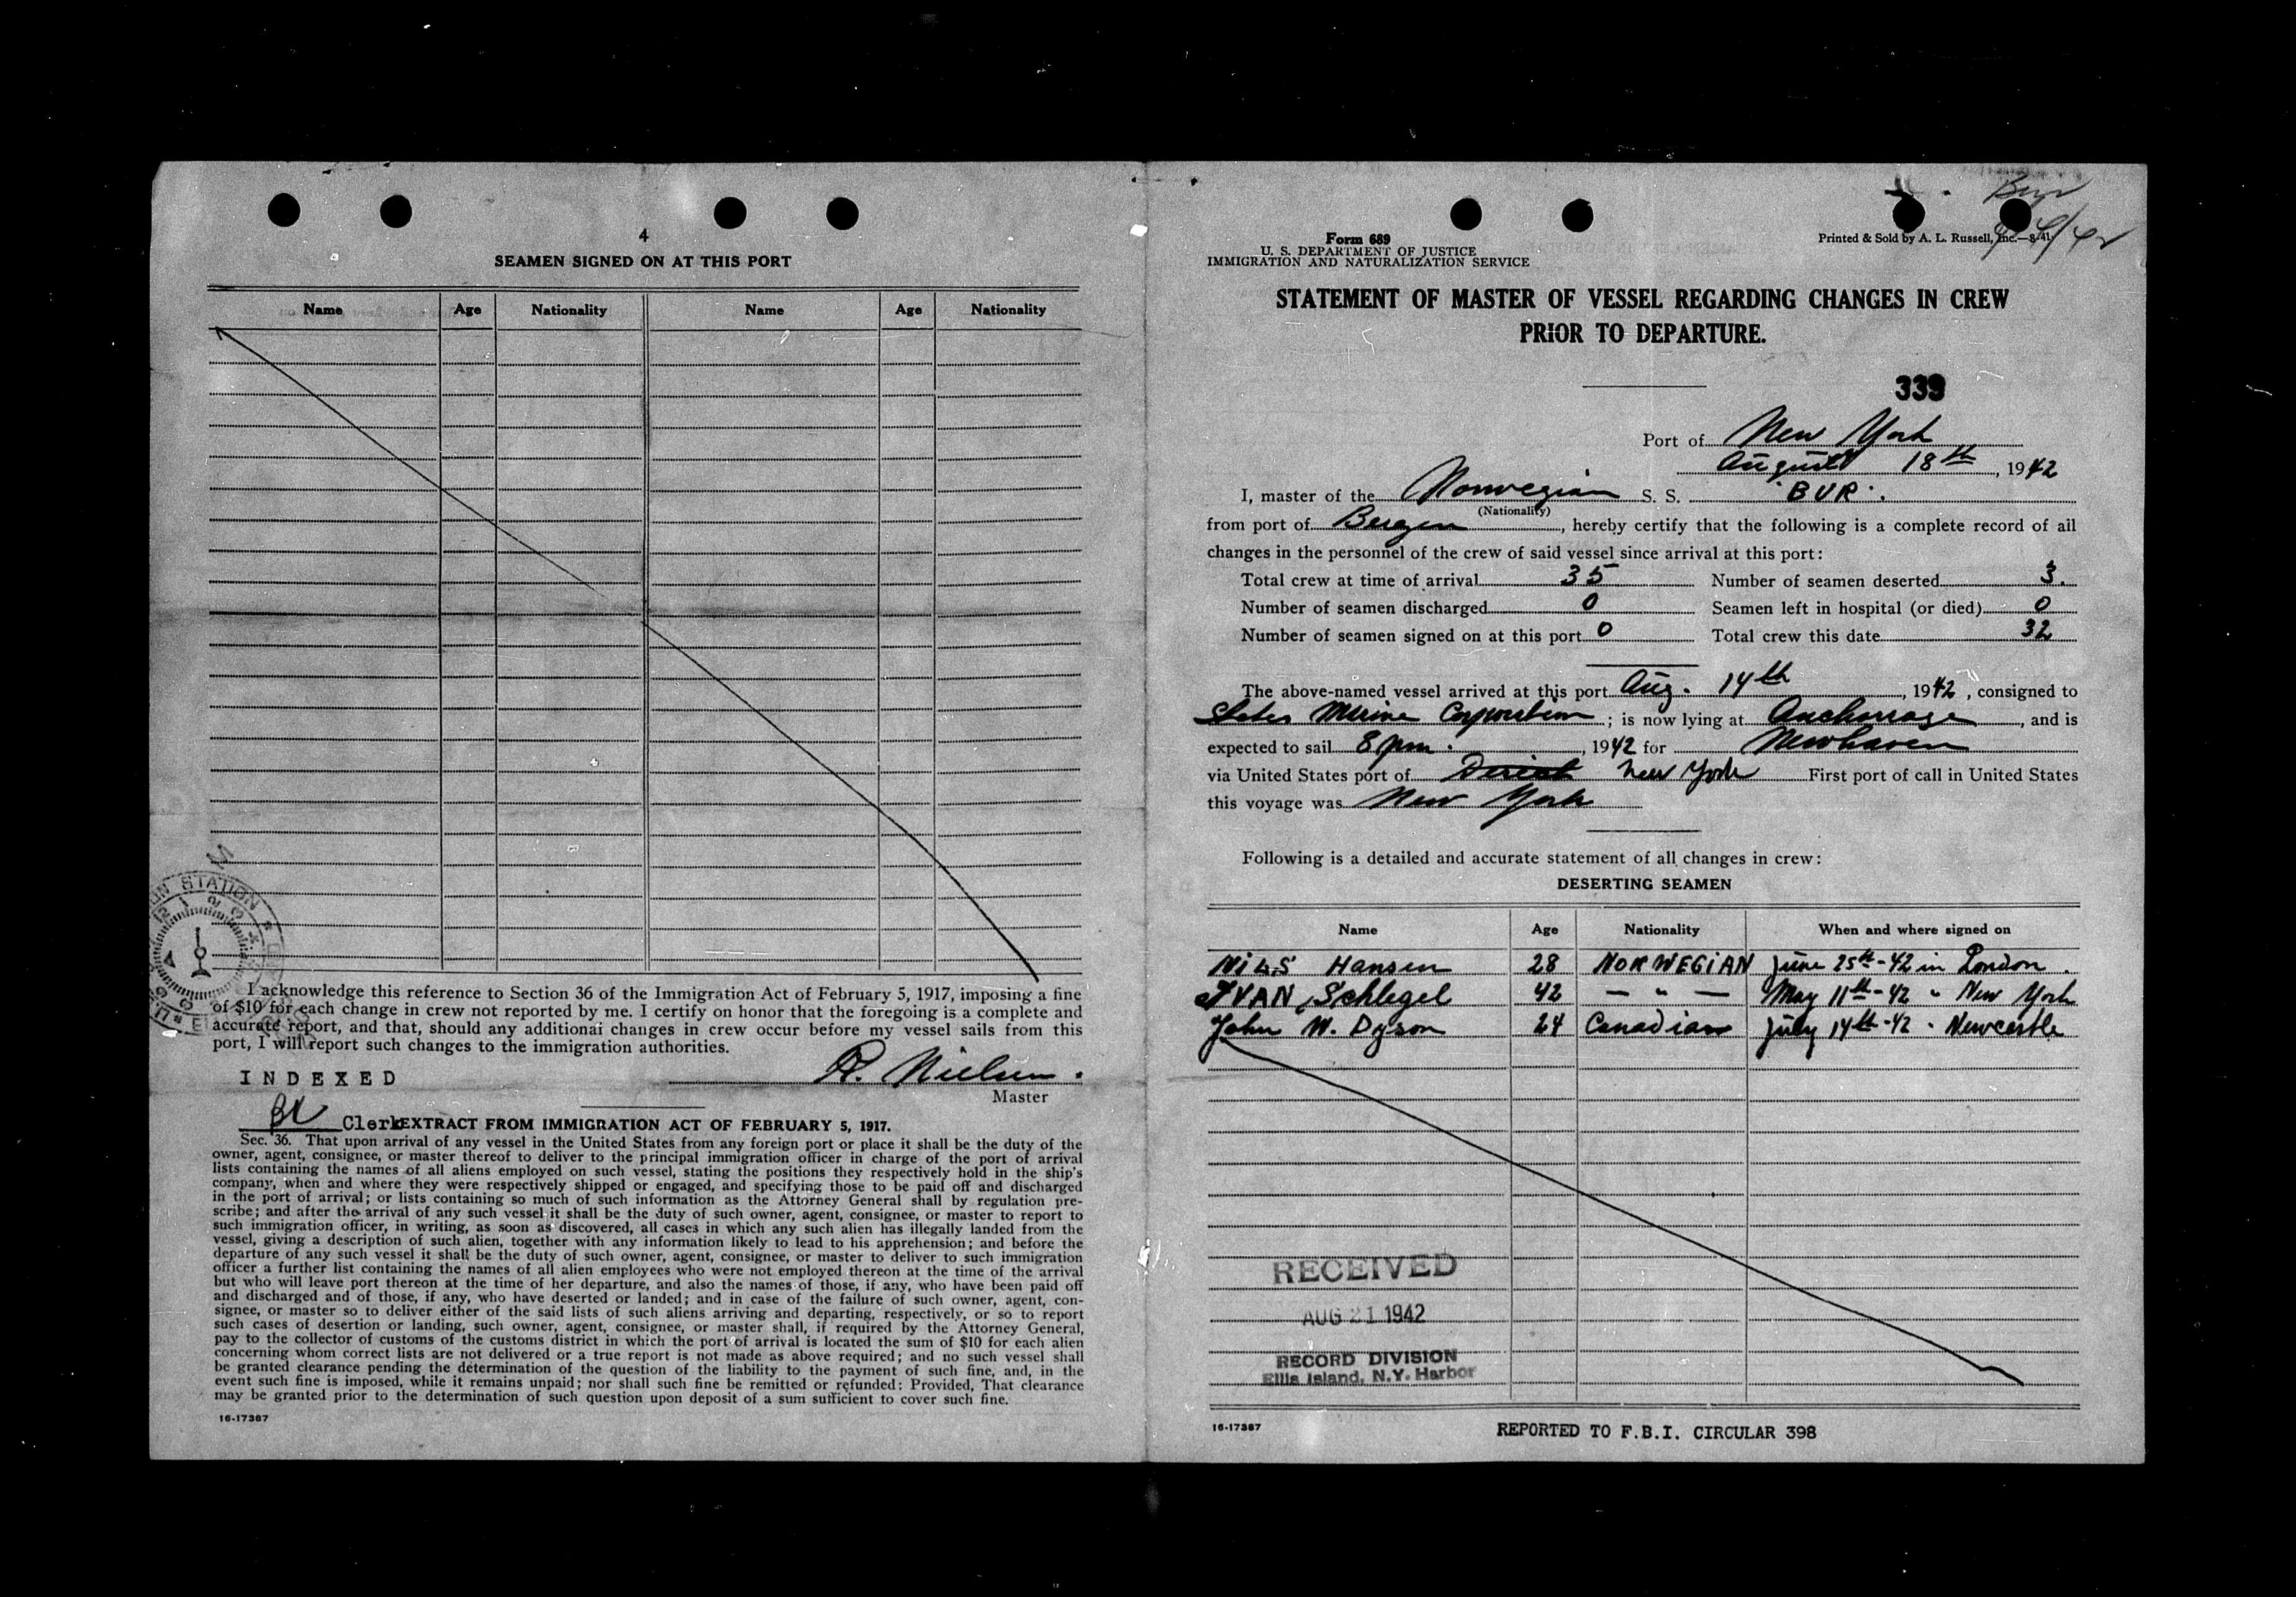 4
SEAMEN SIGNED ON AT THIS PORT
Name Age Nationality Name Age Nationality
I acknowledge this reference to Section 36 of the Immigration Act of February 5, 1917, imposing a fine
of $10 for each change in crew not reported by me. I certify on honor that the foregoing is a complete and
accurate report, and that, should any additional changes in crew occur before my vessel sails from this
port, I will report such changes to the immigration authorities.
INDEXED
R. Nielsen.
Master
Clerk
EXTRACT FROM IMMIGRATION ACT OF FEBRUARY 5, 1917.
Sec. 36. That upon arrival of any vessel in the United States from any foreign port or place it shall be the duty of the
owner, agent, consignee, or master thereof to deliver to the principal immigration officer in charge of the port of arrival
lists containing the names of all aliens employed on such vessel, stating the positions they respectively hold in the ship's
company, when and where they were respectively shipped or engaged, and specifying those to be paid off and discharged
in the port of arrival; or lists containing so much of such information as the Attorney General shall by regulation pre-
scribe; and after the arrival of any such vessel it shall be the duty of such owner, agent, consignee, or master to report to
such immigration officer, in writing, as soon as discovered, all cases in which any such alien has illegally landed from the
vessel, giving a description of such alien, together with any information likely to lead to his apprehension; and before the
departure of any such vessel it shall be the duty of such owner, agent, consignee, or master to deliver to such immigration
officer a further list containing the names of all alien employees who were not employed thereon at the time of the arrival
but who will leave port thereon at the time of her departure, and also the names of those, if any, who have been paid off
and discharged and of those, if any, who have deserted or landed; and in case of the failure of such owner, agent, con-
signee, or master so to deliver either of the said lists of such aliens arriving and departing, respectively, or so to report
such cases of desertion or landing, such owner, agent, consignee, or master shall, if required by the Attorney General,
pay to the collector of customs of the customs district in which the port of arrival is located the sum of $10 for each alien
concerning whom correct lists are not delivered or a true report is not made as above required; and no such vessel shall
be granted clearance pending the determination of the question of the liability to the payment of such fine, and, in the
event such fine is imposed, while it remains unpaid; nor shall such fine be remitted or refunded: Provided, That clearance
may be granted prior to the determination of such question upon deposit of a sum sufficient to cover such fine.
16-17387
Form 689
U. S. DEPARTMENT OF JUSTICE
IMMIGRATION AND NATURALIZATION SERVICE
Printed & Sold by A. L. Russell, Inc.—8-41
STATEMENT OF MASTER OF VESSEL REGARDING CHANGES IN CREW
PRIOR TO DEPARTURE.
339
Port of New York
August 18th, 1942
I, master of the Norwegian S. S. "BUR".
(Nationality)
from port of Bergen, hereby certify that the following is a complete record of all
changes in the personnel of the crew of said vessel since arrival at this port:
Total crew at time of arrival 35 Number of seamen deserted 3.
Number of seamen discharged 0 Seamen left in hospital (or died) 0
Number of seamen signed on at this port 0 Total crew this date 32
The above-named vessel arrived at this port Aug. 14th, 1942, consigned to
States Marine Corporation; is now lying at Anchorage, and is
expected to sail 8 pm., 1942 for Newhaven
via United States port of Direct New York First port of call in United States
this voyage was New York
Following is a detailed and accurate statement of all changes in crew:
DESERTING SEAMEN
Name Age Nationality When and where signed on
NILS Hansen 28 NORWEGIAN June 25th-42 in London.
IVAN Schlegel 42 — " — May 11th-42 " New York
John W. Dyson 24 Canadian July 14th-42 " Newcastle
RECEIVED
AUG 21 1942
RECORD DIVISION
Ellis Island, N.Y. Harbor
16-17387
REPORTED TO F.B.I. CIRCULAR 398